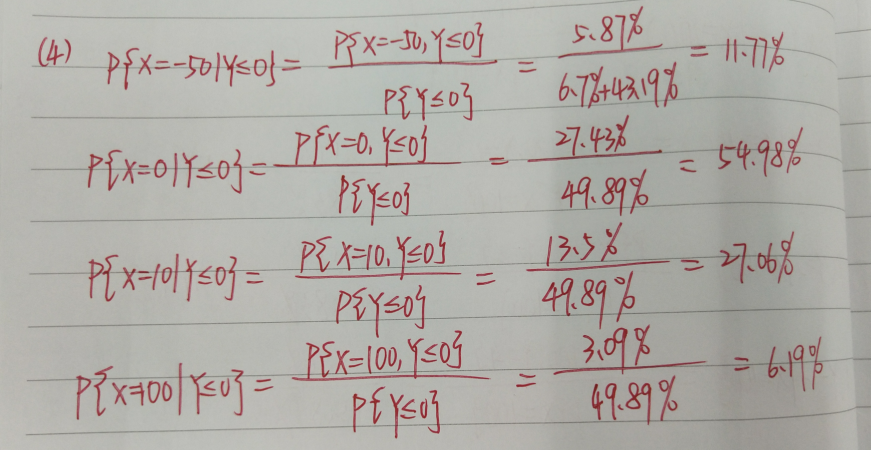 (4) P{X=-50|Y≤0} = P{X=-50, Y≤0} / P{Y≤0} = 5.87% / 6.7%+43.19% = 11.77%
P{X=0|Y≤0} = P{X=0, Y≤0} / P{Y≤0} = 27.43% / 49.89% = 54.98%
P{X=10|Y≤0} = P{X=10, Y≤0} / P{Y≤0} = 13.5% / 49.89% = 27.06%
P{X=100|Y≤0} = P{X=100, Y≤0} / P{Y≤0} = 3.09% / 49.89% = 6.19%